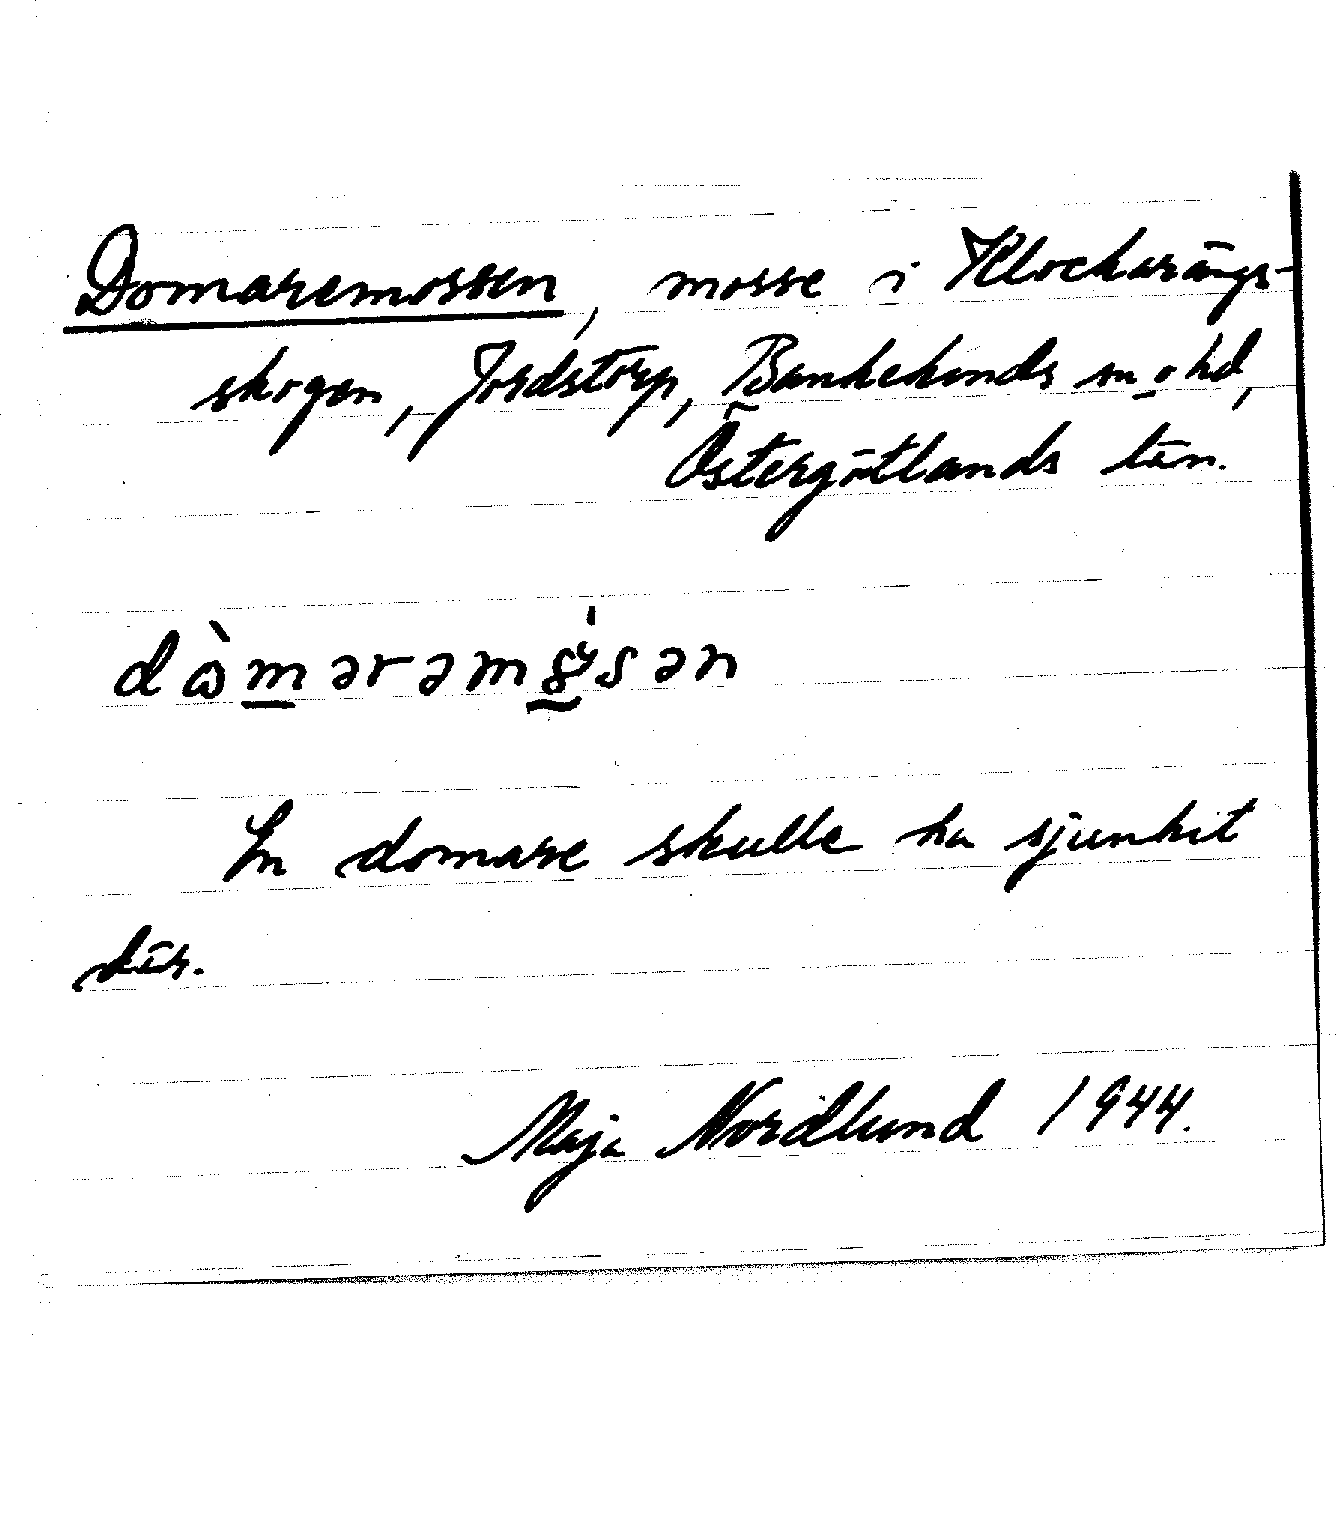 Domaremossen, mosse i Klockarängs-
skogen, Jordstorp, Bankekinds sn o hd,
Östergötlands län.
En domare skulle ha sjunkit
där.
Maja Nordlund 1944.